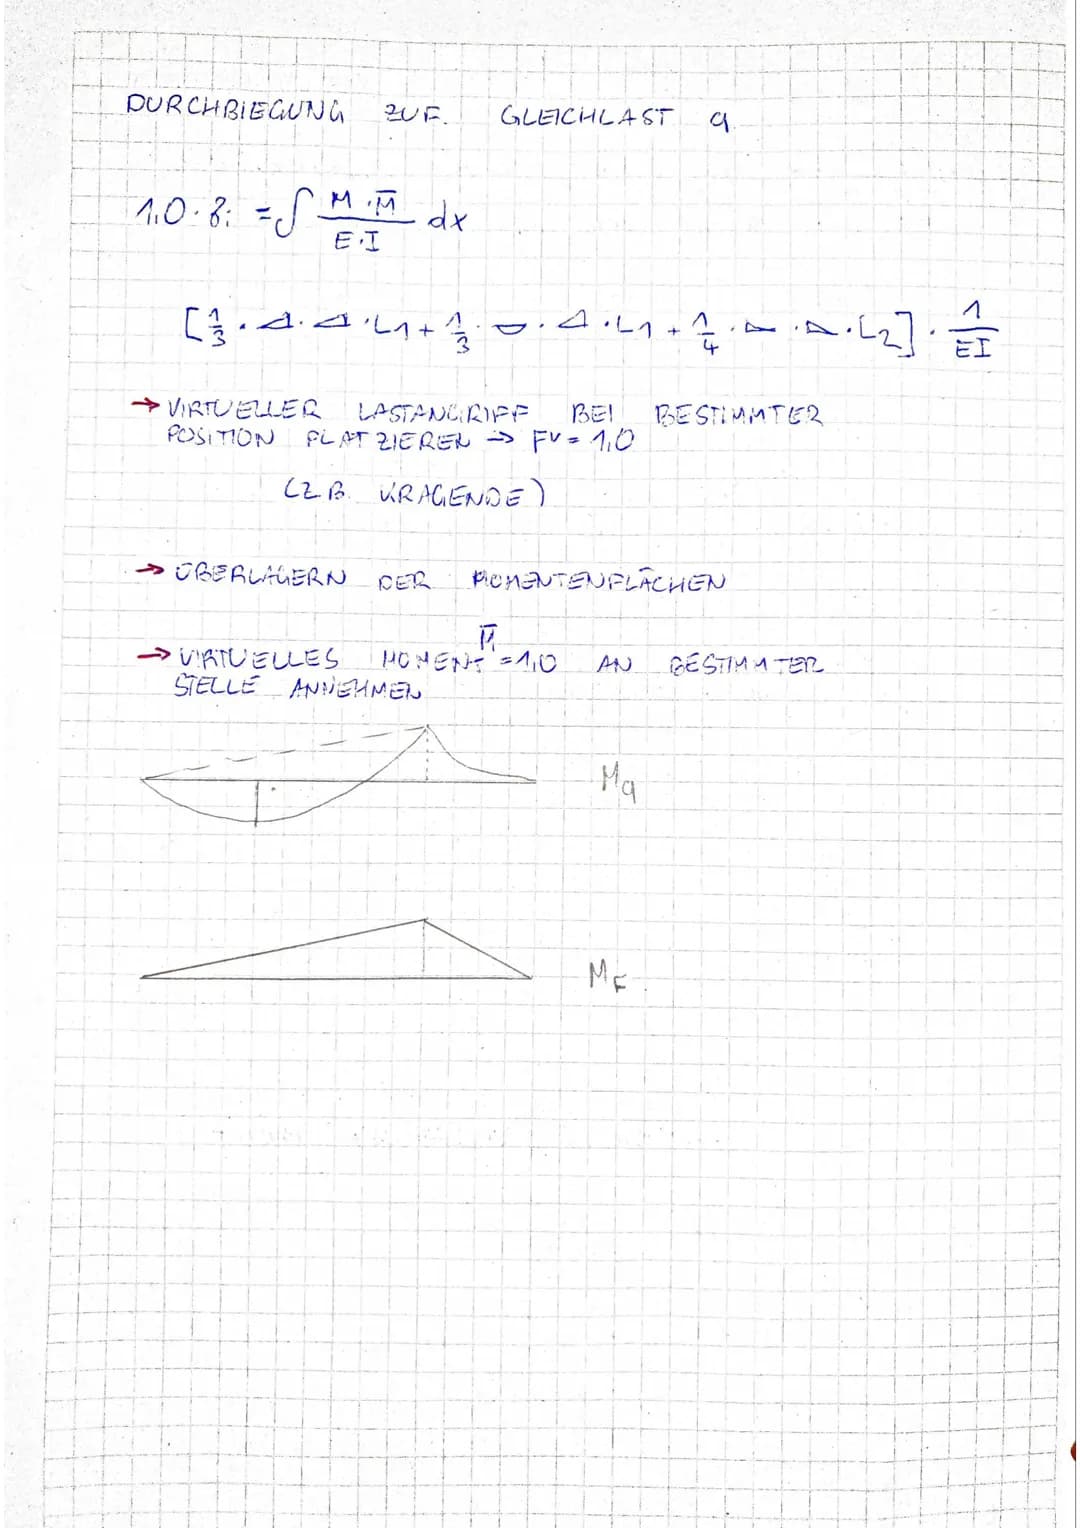 DURCHBIEGUNG ZUF. GLEICHLAST q
1,0 · δi = ∫ M · M̅ / E·I dx
[1/3 · ◿ · ◿ · L1 + 1/3 · ◡ · ◿ · L1 + 1/4 · ◺ · ◺ · L2] · 1/EI
→ VIRTUELLER LASTANGRIFF BEI BESTIMMTER
POSITION PLATZIEREN → FV = 1,0
(Z.B. KRAGENDE)
→ ÜBERLAGERN DER MOMENTENFLÄCHEN
→ VIRTUELLES MOMENT M̅ = 1,0 AN BESTIMMTER
STELLE ANNEHMEN
Mq
MF